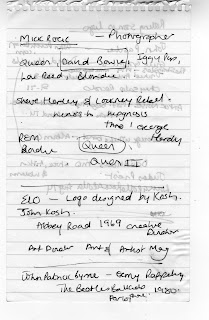 Mick Rock - Photographer
Queen, David Bowie, Iggy Pop,
Lou Reed, Blondie
Steve Harley & Cockney Rebel.
thro George
Hardy
REM
Blondie
Queen
Queen II
ELO - Logo designed by Kosh.
John Kosh.
Abbey Road 1969 creative
Director
Art Director Art & Artist Mag
John Patrick Byrne - Gerry Rafferty
The Beatles Ballads 1980
Parlophone